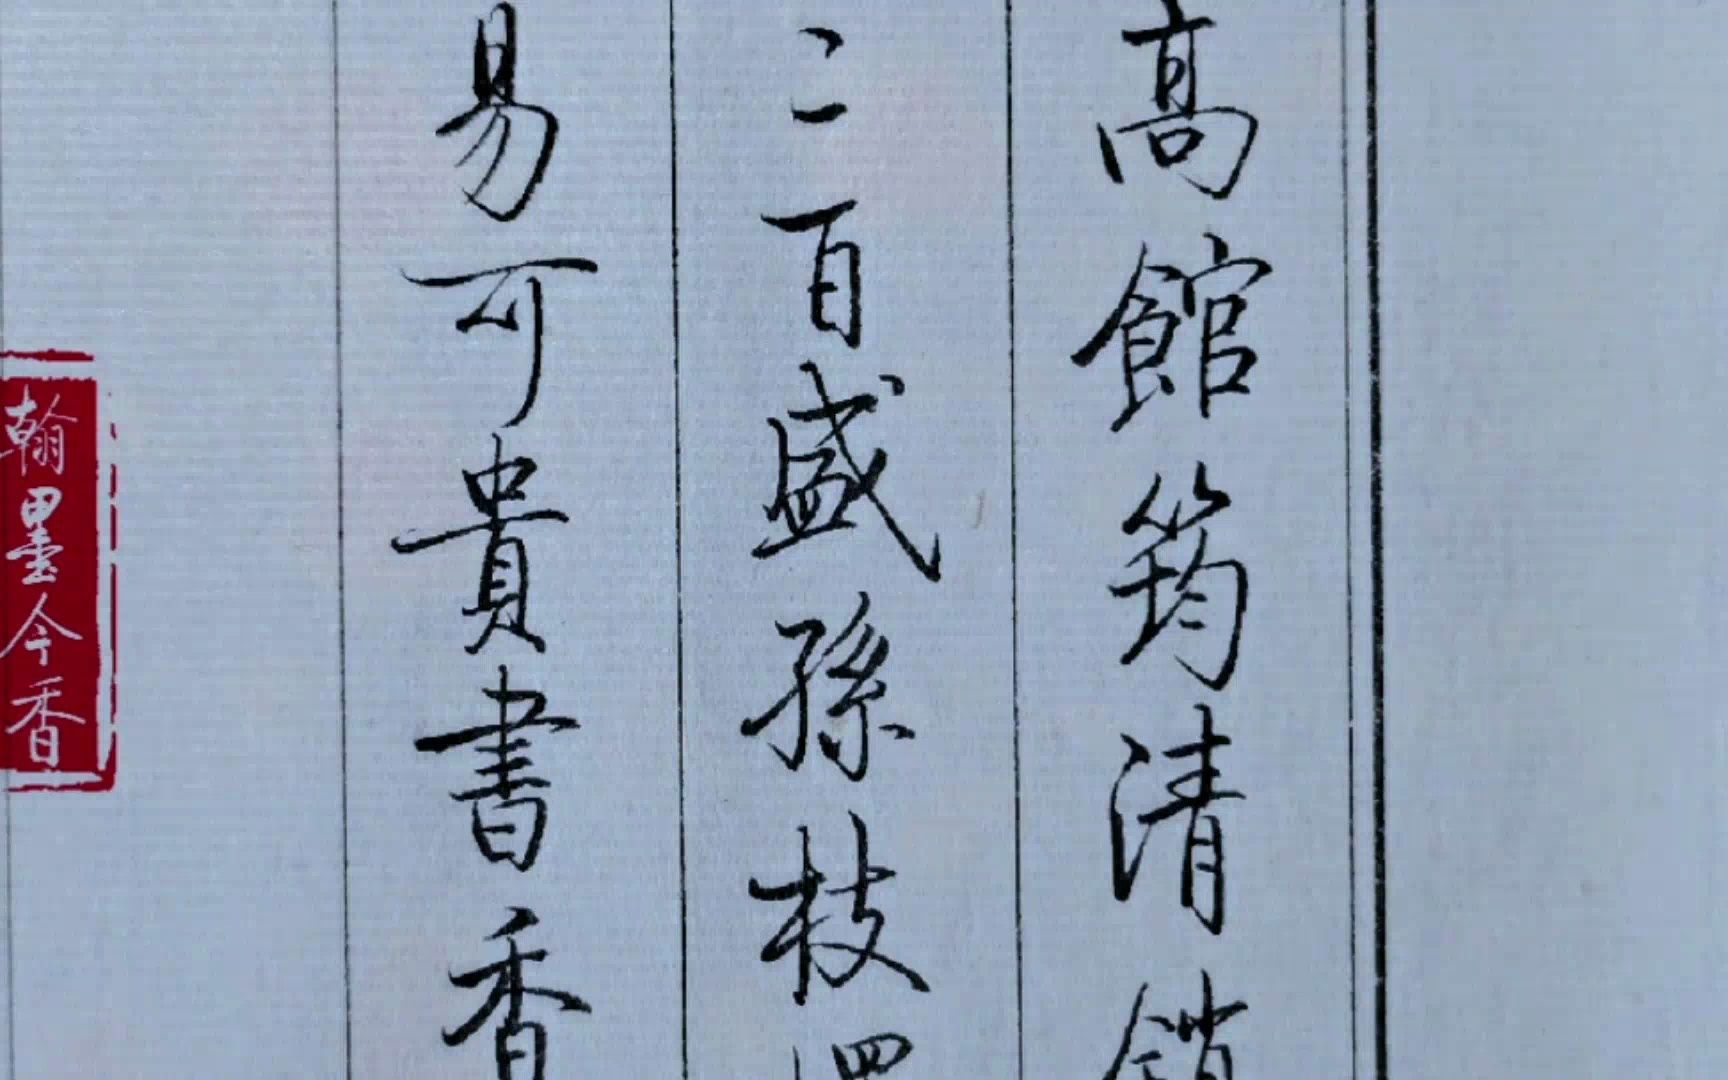 高館筠清銷
二百盛孫枝四
易可貴書香
翰墨今香